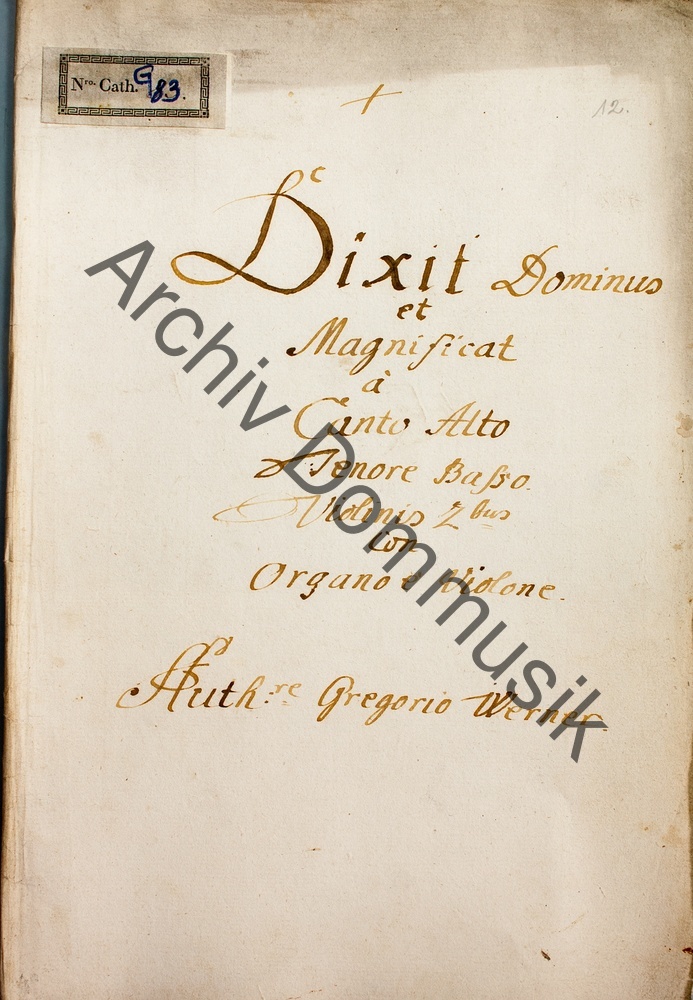 Nro. Cath. G 83.
12.
Dixit Dominus
et
Magnificat
à
Canto Alto
Tenore Baſso.
Violinis 2bus
con
Organo e Violone.
Auth:re Gregorio Werner.
Archiv Dommusik